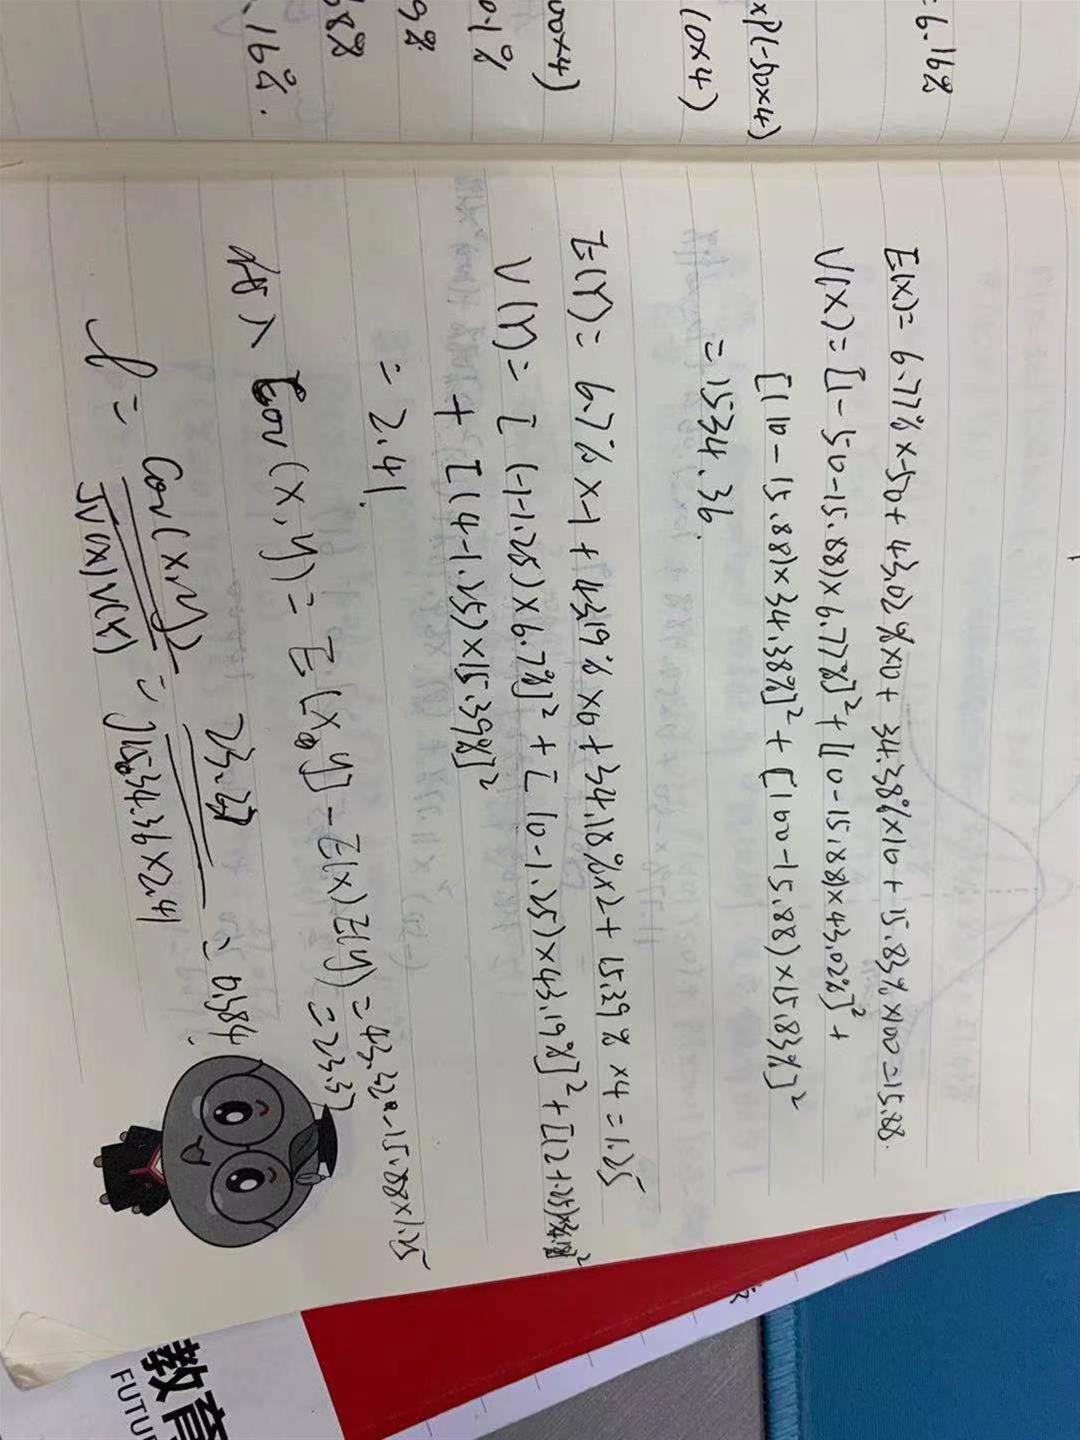 = 6.16%
x P(-50x4)
(10x4)
(100x4)
.16%.
E(X)= 6.77%×-50+43.02%×0+34.38%×10+15.83%×100=15.88.
V(X)=[(-50-15.88)×6.77%]²+[(0-15.88)×43.02%]²+
[(10-15.88)×34.38%]²+[(100-15.88)×15.83%]²
=1534.36.
E(Y)= 6.7%×-1+43.19%×0+34.18%×2+15.39%×4=1.25
V(Y)=[(-1-1.25)×6.7%]²+[(0-1.25)×43.19%]²+[(2+.25)
+[(4-1.25)×15.39%]²
=2.41.
Cov(X,Y)=E[XY]-E(X)E(Y)=43.22-15.88×1.25
=23.37
ρ= Cov(X,Y) / √V(X)V(Y) = 23.37 / √1534.36×2.41 = 0.384.
教育
FUTU